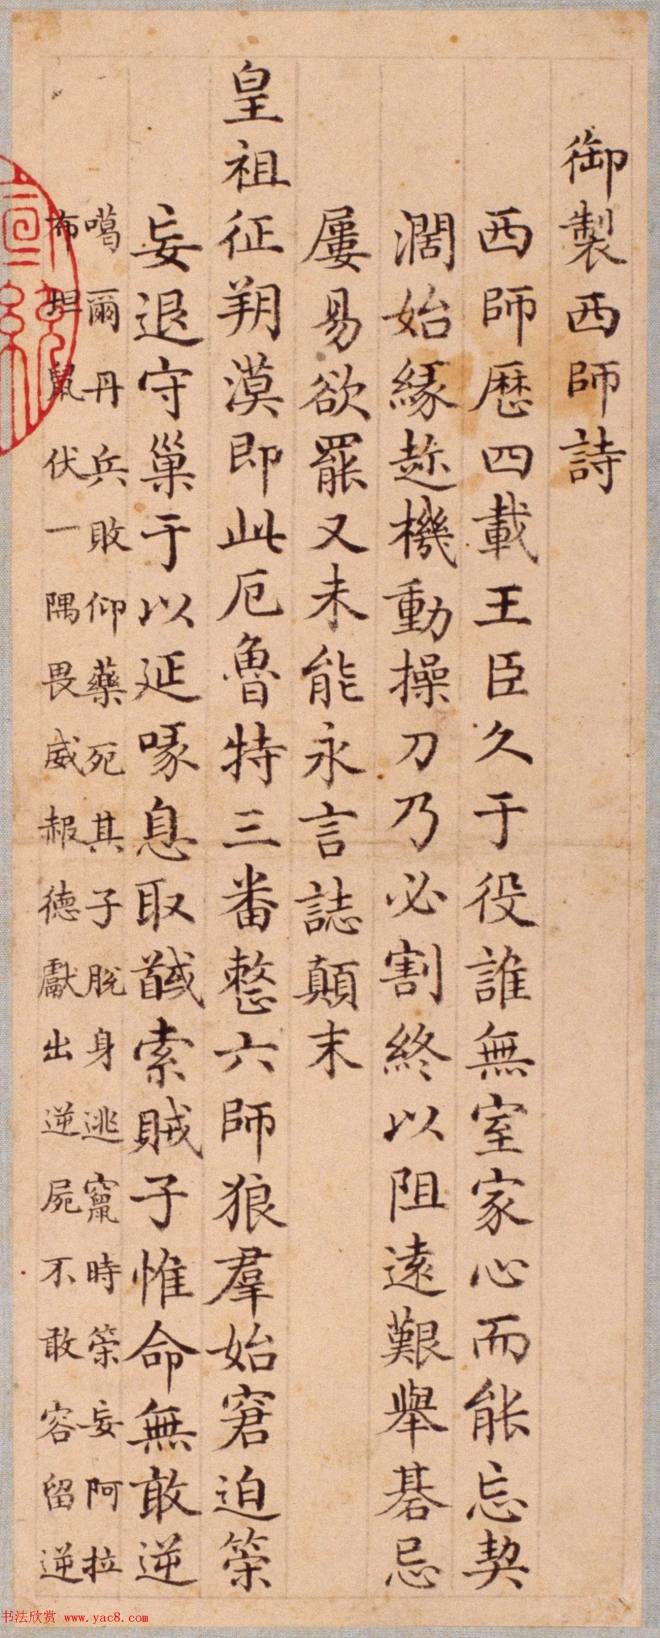 御製西師詩
西師歷四載王臣久于役誰無室家心而能忘契
濶始緣趂機動操刀乃必割終以阻遠艱舉棊忌
屢易欲罷又未能永言誌顛末
皇祖征朔漠即此厄魯特三番整六師狼羣始窘迫策
妄退守巢于以延喙息取馘索賊子惟命無敢逆
噶爾丹兵敗仰藥死其子脫身逃竄時策妄阿拉
布坦鼠伏一隅畏威報德獻出逆屍不敢容留逆
书法欣赏 www.yac8.com